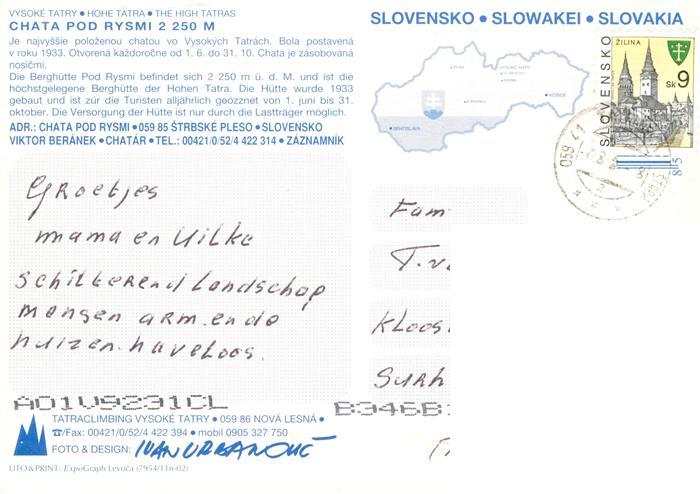 VYSOKÉ TATRY • HOHE TATRA • THE HIGH TATRAS
CHATA POD RYSMI 2 250 M
Je najvyššie položenou chatou vo Vysokých Tatrách. Bola postavená
v roku 1933. Otvorená každoročne od 1. 6. do 31. 10. Chata je zásobovaná
nosičmi.
Die Berghütte Pod Rysmi befindet sich 2 250 m ü. d. M. und ist die
höchstgelegene Berghütte der Hohen Tatra. Die Hütte wurde 1933
gebaut und ist zür die Turisten alljährlich geözznet von 1. juni bis 31.
oktober. Die Versorgung der Hütte ist nur durch die Lastträger möglich.
ADR.: CHATA POD RYSMI • 059 85 ŠTRBSKÉ PLESO • SLOVENSKO
VIKTOR BERÁNEK • CHATÁR • TEL.: 00421/0/52/4 422 314 • ZÁZNAMNÍK
SLOVENSKO • SLOWAKEI • SLOVAKIA
ŽILINA
KOŠICE
BRATISLAVA
SLOVENSKO
ŽILINA
Sk 9
059 41
Groetjes
mama en Hilke
Schitterend landschap
mensen arm en de
huizen haveloos.
Fam
T. v
Kloos
Surh
A01V9231CL
B346B
TATRACLIMBING VYSOKÉ TATRY • 059 86 NOVÁ LESNÁ •
☎/Fax: 00421/0/52/4 422 394 • mobil 0905 327 750
FOTO & DESIGN: IVAN URBANOVIČ
LITO & PRINT: ExpoGraph Levoča (7954/11n-02)